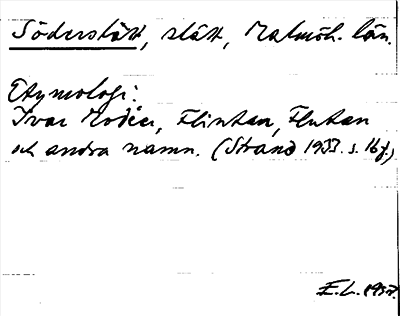 Söderslätt, slätt, Malmöh. län.
Etymologi:
Ivar Modéer, Flintan, Flutan
och andra namn. (Strand 1933. s. 16 f.)
E.L. 1937.